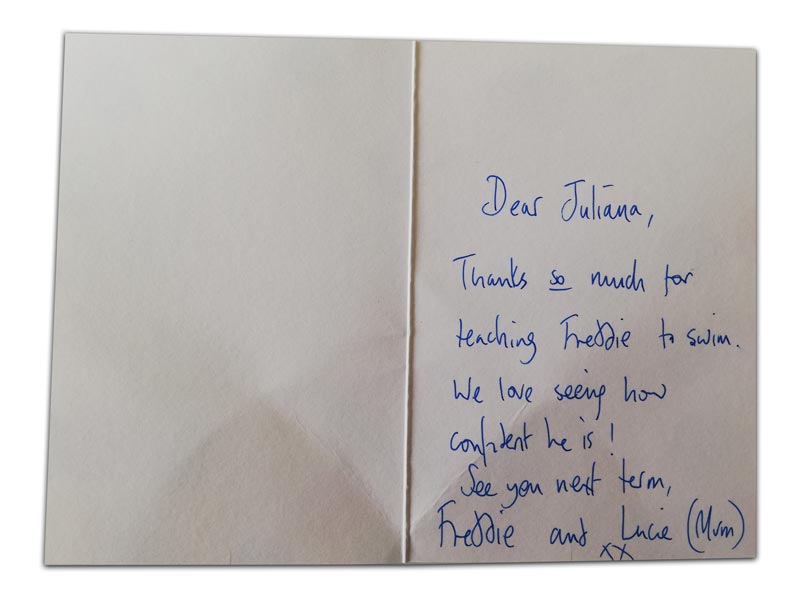 Dear Juliana,
Thanks so much for
teaching Freddie to swim.
We love seeing how
confident he is!
See you next term,
Freddie and Lucie (Mum)
xx